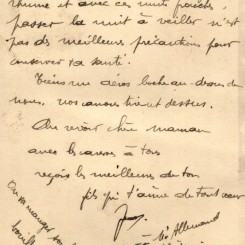 rhume et avec ces nuits fraîches,
passer la nuit à veiller n'est
pas des meilleures précautions pour
conserver sa santé.
Tiens un aéro boche au-dessus de
nous, nos canons tirent dessus.
Au revoir chère maman
avec les à tous
reçois les meilleurs de ton
fils qui t'aime de tout cœur
On mange
Allemand